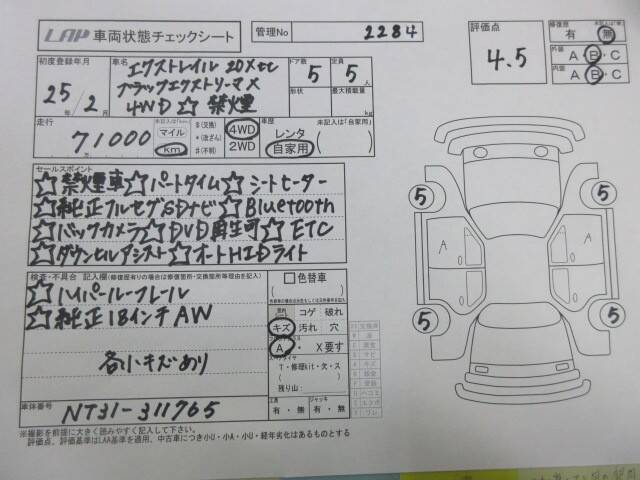 LAP 車両状態チェックシート
管理No 2284
評価点 4.5
修復歴 有 無
外装 A・B・C
内装 A・B・C
初度登録年月 25年 2月
車名 エクストレイル 20Xtt
ブラックエクストリーマX
4WD ☆ 禁煙
ドア数 5
定員 5人
形状
最大積載量 kg
走行 71000
未記入は「km」
マイル
km
$(交換)
*(改ざん)
#(不明)
4WD
2WD
車歴 未記入は「自家用」
レンタ
自家用
セールスポイント
☆禁煙車☆パートタイム☆シートヒーター
☆純正フルセグSDナビ☆Bluetooth
☆バックカメラ☆DVD再生可☆ETC
☆ダウンヒルアシスト☆オートHIDライト
検査・不具合 記入欄(修復歴有りの場合は修復箇所・交換箇所等理由を記入)
☆ハイパールーフレール
☆純正18インチAW
各小キズあり
色替車
コゲ 破れ
キズ 汚れ 穴
A・ X要す
T・修理kit・欠・ス
残り山:
工具 有・無
ジャッキ 有・無
車体番号 NT31-311765
※撮影を前提に大きく読みやすく記入して下さい。
評価点、評価基準はLAA基準を適用、中古車につき小U・小A・小U・経年劣化はあるものとする
5
5
A
A
5
5